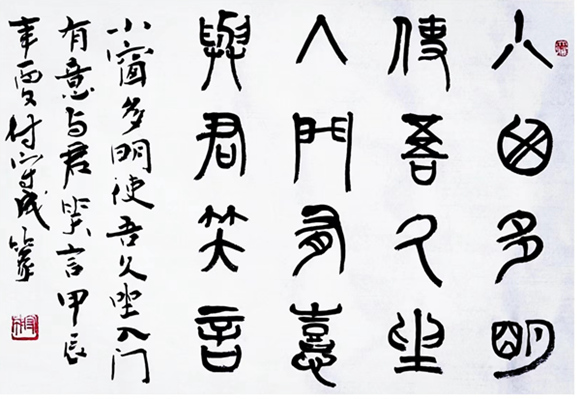 小囱多明
使吾久坐
入門有憙
與君笑言
小窗多明使吾久坐入门
有憙与君笑言甲辰
辛酉付守成篆